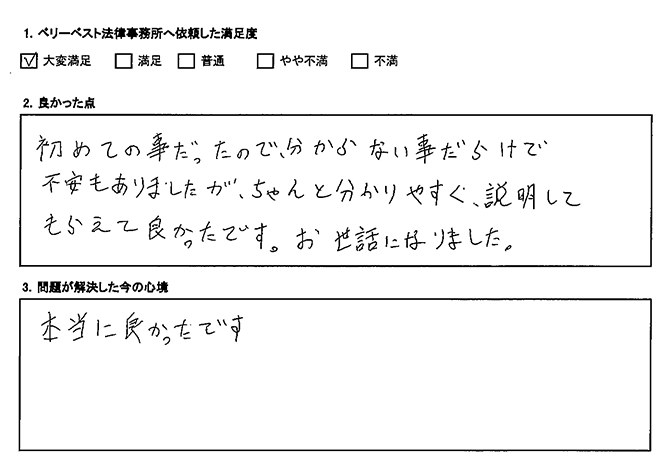 1. ベリーベスト法律事務所へ依頼した満足度
☑ 大変満足 □ 満足 □ 普通 □ やや不満 □ 不満
2. 良かった点
初めての事だったので、分からない事だらけで
不安もありましたが、ちゃんと分かりやすく、説明して
もらえて良かったです。お世話になりました。
3. 問題が解決した今の心境
本当に良かったです